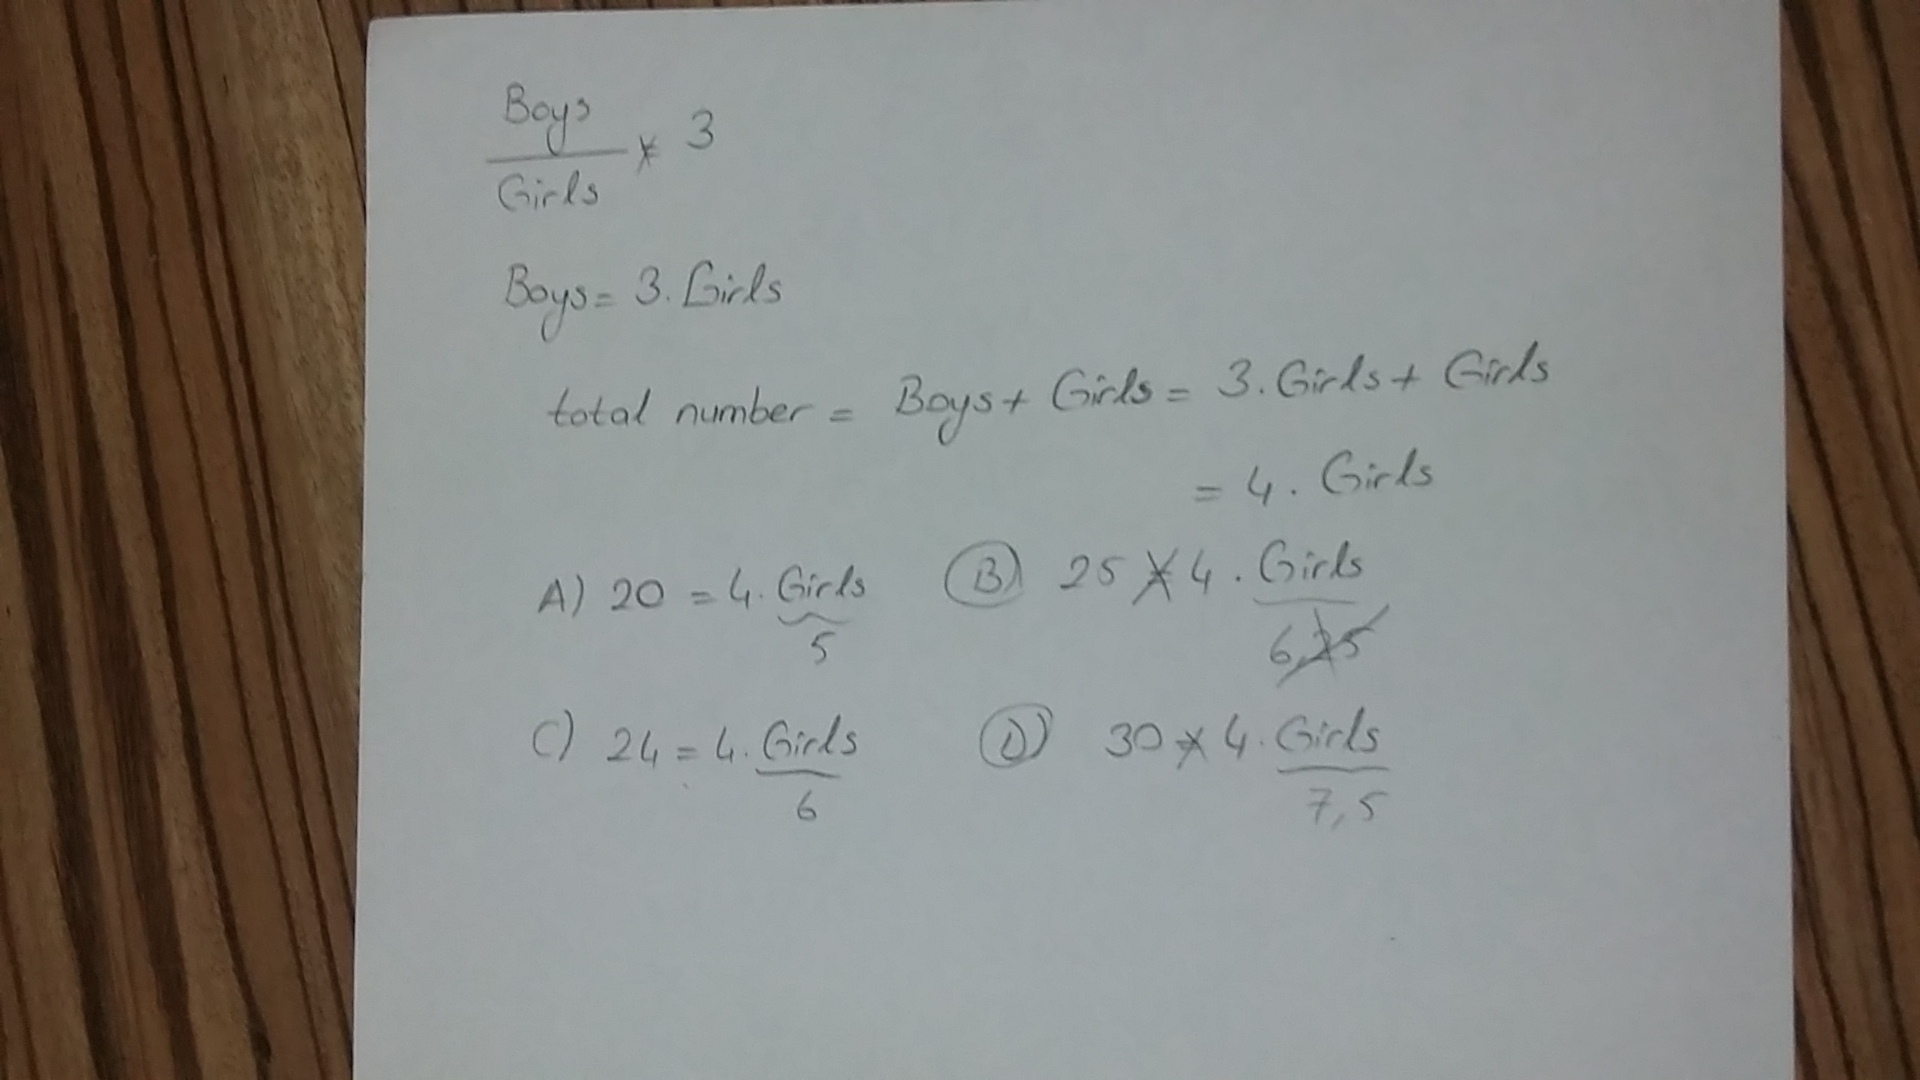 Boys
Girls
≠ 3
Boys = 3. Girls
total number = Boys + Girls = 3. Girls + Girls
= 4. Girls
A) 20 = 4. Girls
5
B) 25 ≠ 4. Girls
6,25
C) 24 = 4. Girls
6
D) 30 ≠ 4. Girls
7,5